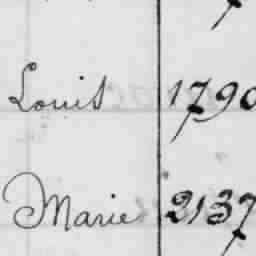 Louis 1790
Marie 2137